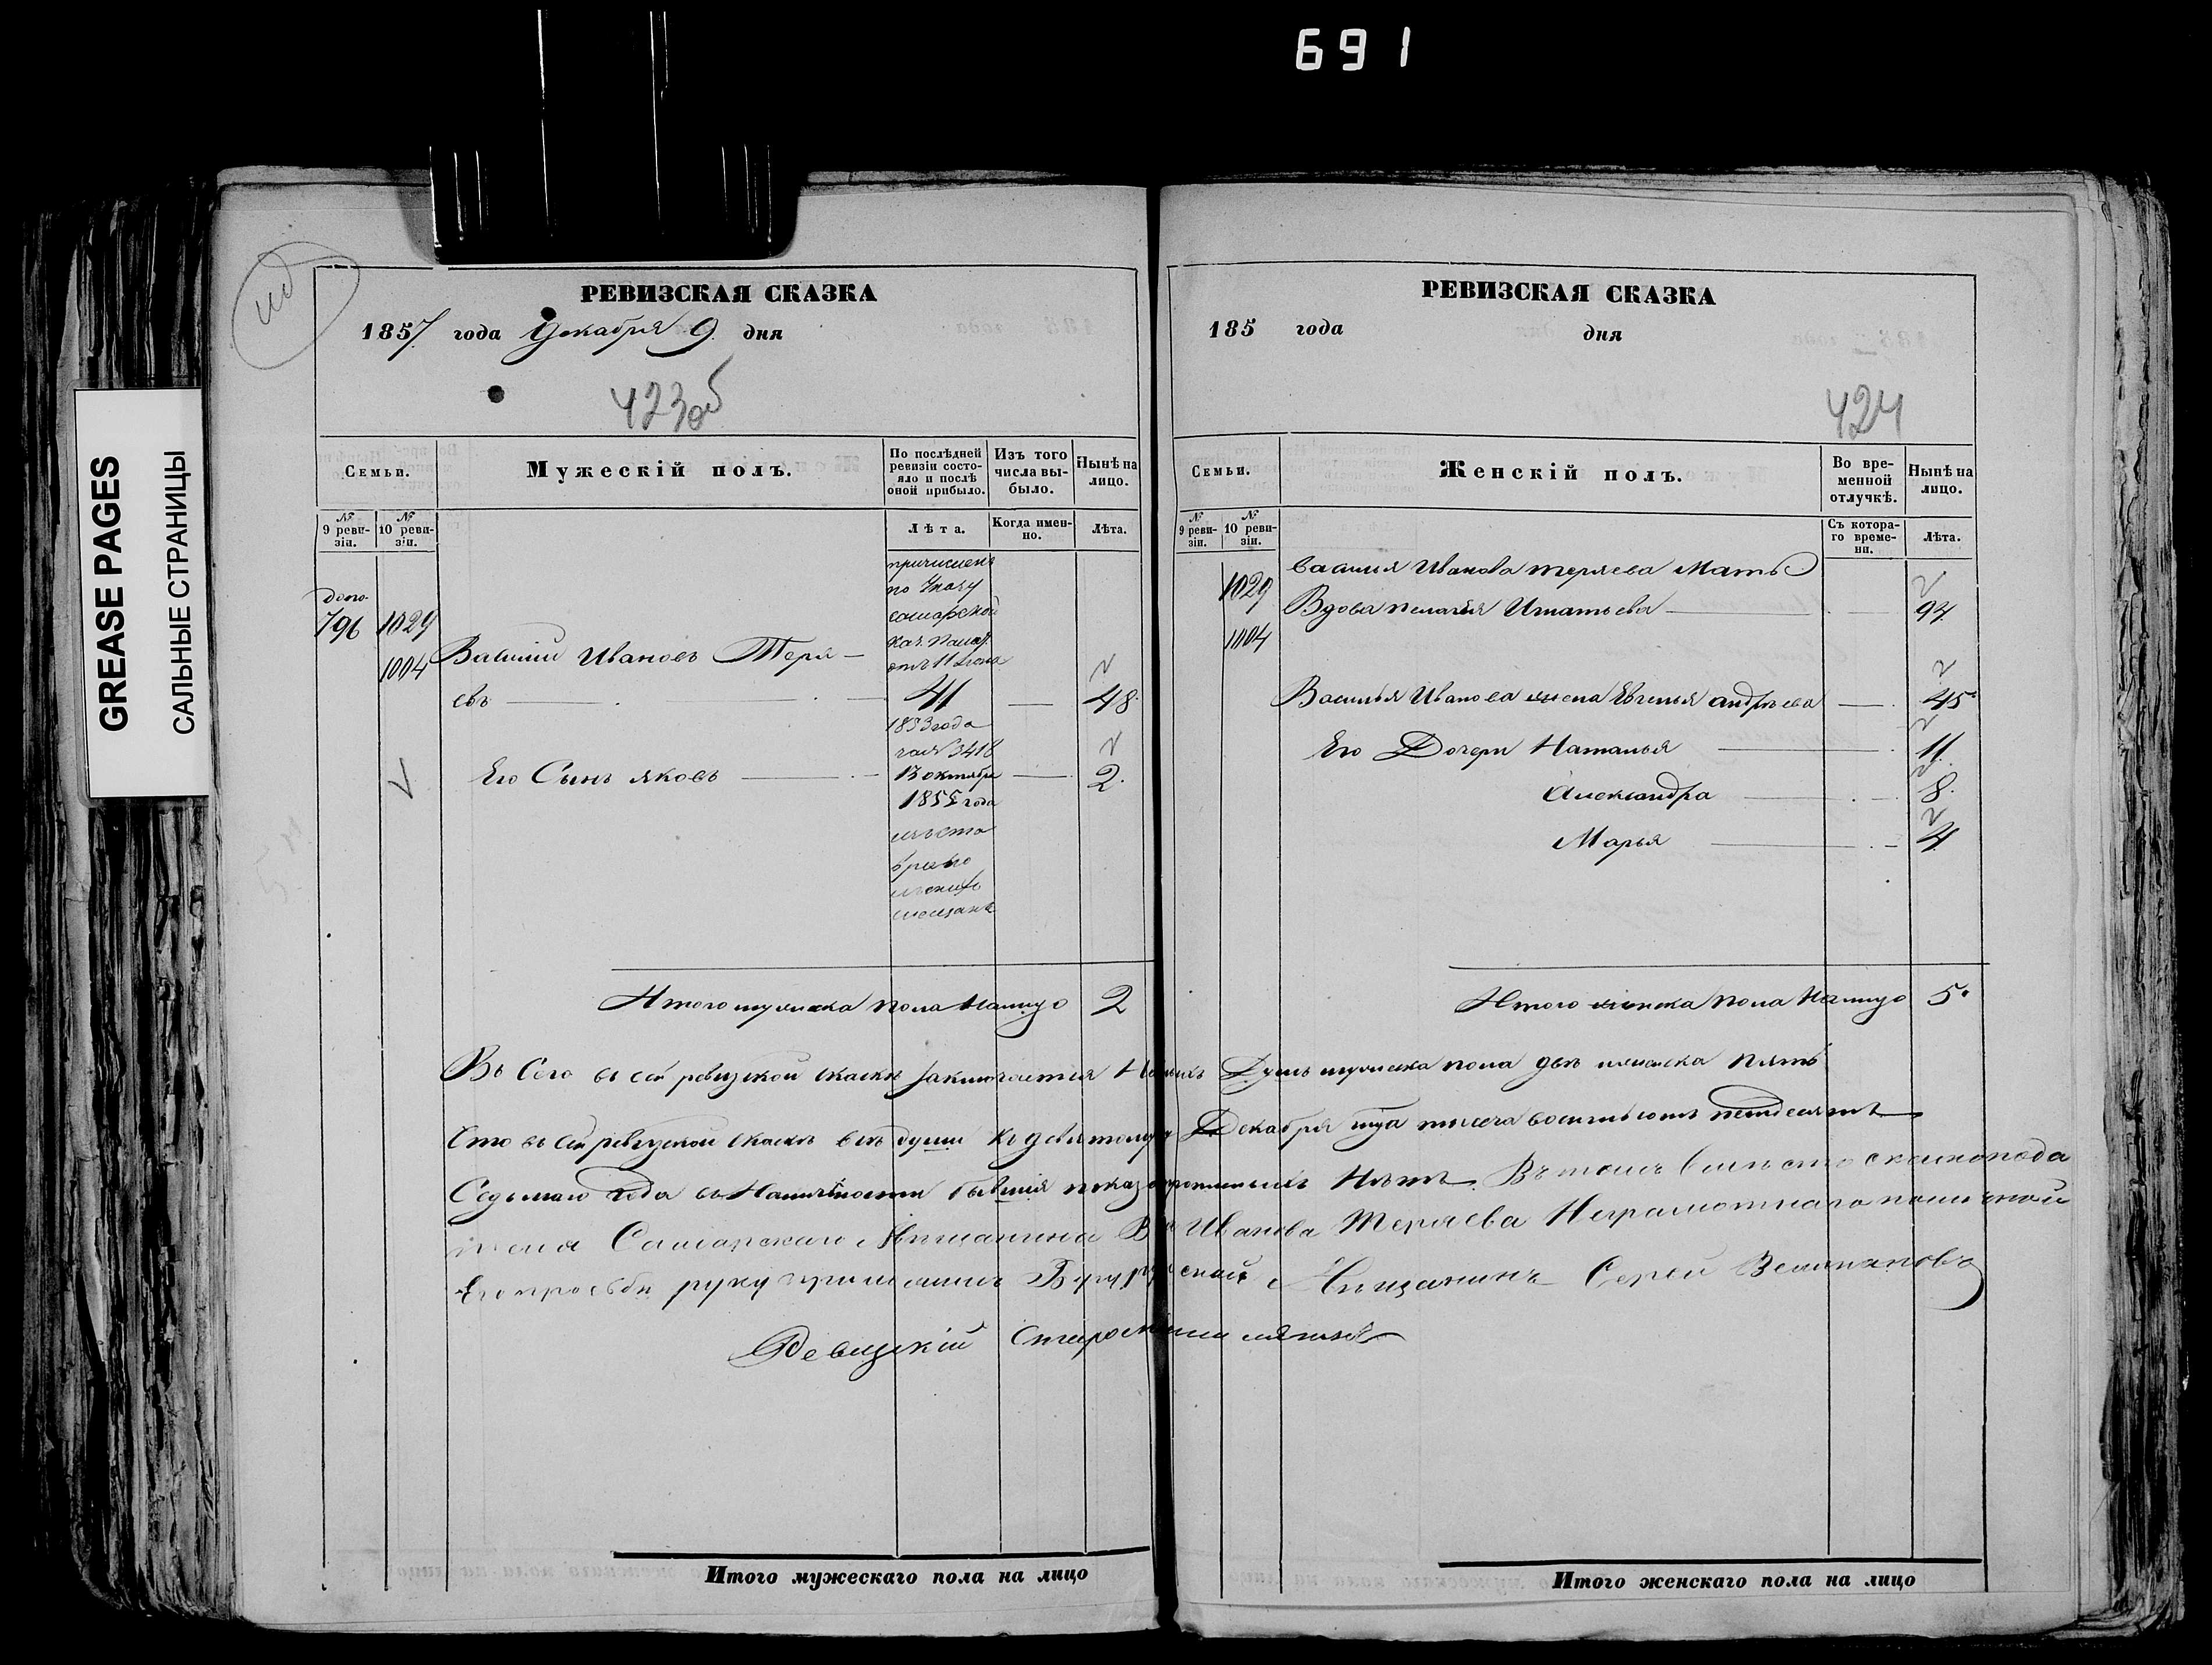 691
GREASE PAGES
САЛЬНЫЕ СТРАНИЦЫ
РЕВИЗСКАЯ СКАЗКА
1857 года Декабря 9 дня
423об
Семьи.
Мужескій полъ.
По послѣдней ревизіи состояло и послѣ оной прибыло.
Изъ того числа выбыло.
Нынѣ на лицо.
№ 9 ревизіи.
№ 10 ревизіи.
Лѣта.
Когда именно.
Лѣта.
причислен
по Указу
самарской
Каз. Палат.
отъ 11 Июня
допо.
796 1029
1004 Василий Ивановъ Теря-
евъ 41 48
1853 года
за № 3416
Его Сынъ яковъ 13 октября 2.
1855 года
мещане
Итого мужеска пола Налицо 2
РЕВИЗСКАЯ СКАЗКА
185 года дня
424
Семьи.
Женскій полъ.
Во временной отлучкѣ.
Нынѣ на лицо.
№ 9 ревизіи.
№ 10 ревизіи.
Съ котораго времени.
Лѣта.
Василия Иванова теряева Мать
1029 Вдова пелагея Игнатьева 94
1004
Василья Иванова жена Евгенья андрѣева 45
Его Дочери Наталья 11
Александра 8
Марья 4
Итого женска пола Налицо 5
Въ Сего въ сей ревизкой скаскѣ заключается Наличныхъ Душъ мужеска пола двѣ женска пять
Сто въ сей ревизской скаскѣ всѣ души къ девятому Декабря тысеча восемьсотъ петдесятъ
Седьмаго года въ Наличности бывшия показаны прописныхъ Нѣтъ. Въ томъ вместо
Самарскаго Мѣщанина Ва Иванова Теряева Неграмотнаго по личной
Его прозьбѣ руку приложилъ Бугурусланской Мещанинъ Сергей Велмяновъ
Ревизкій Староста
Итого мужескаго пола на лицо
Итого женскаго пола на лицо